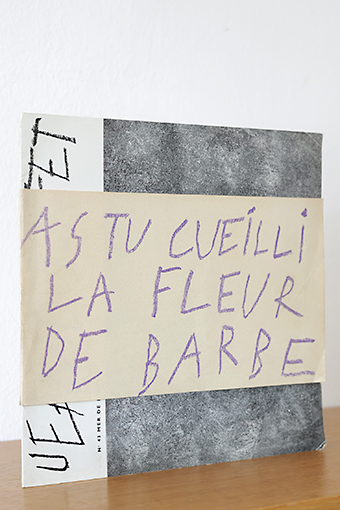 AS TU CUEILLI
LA FLEUR
DE BARBE
N° 43 MER DE